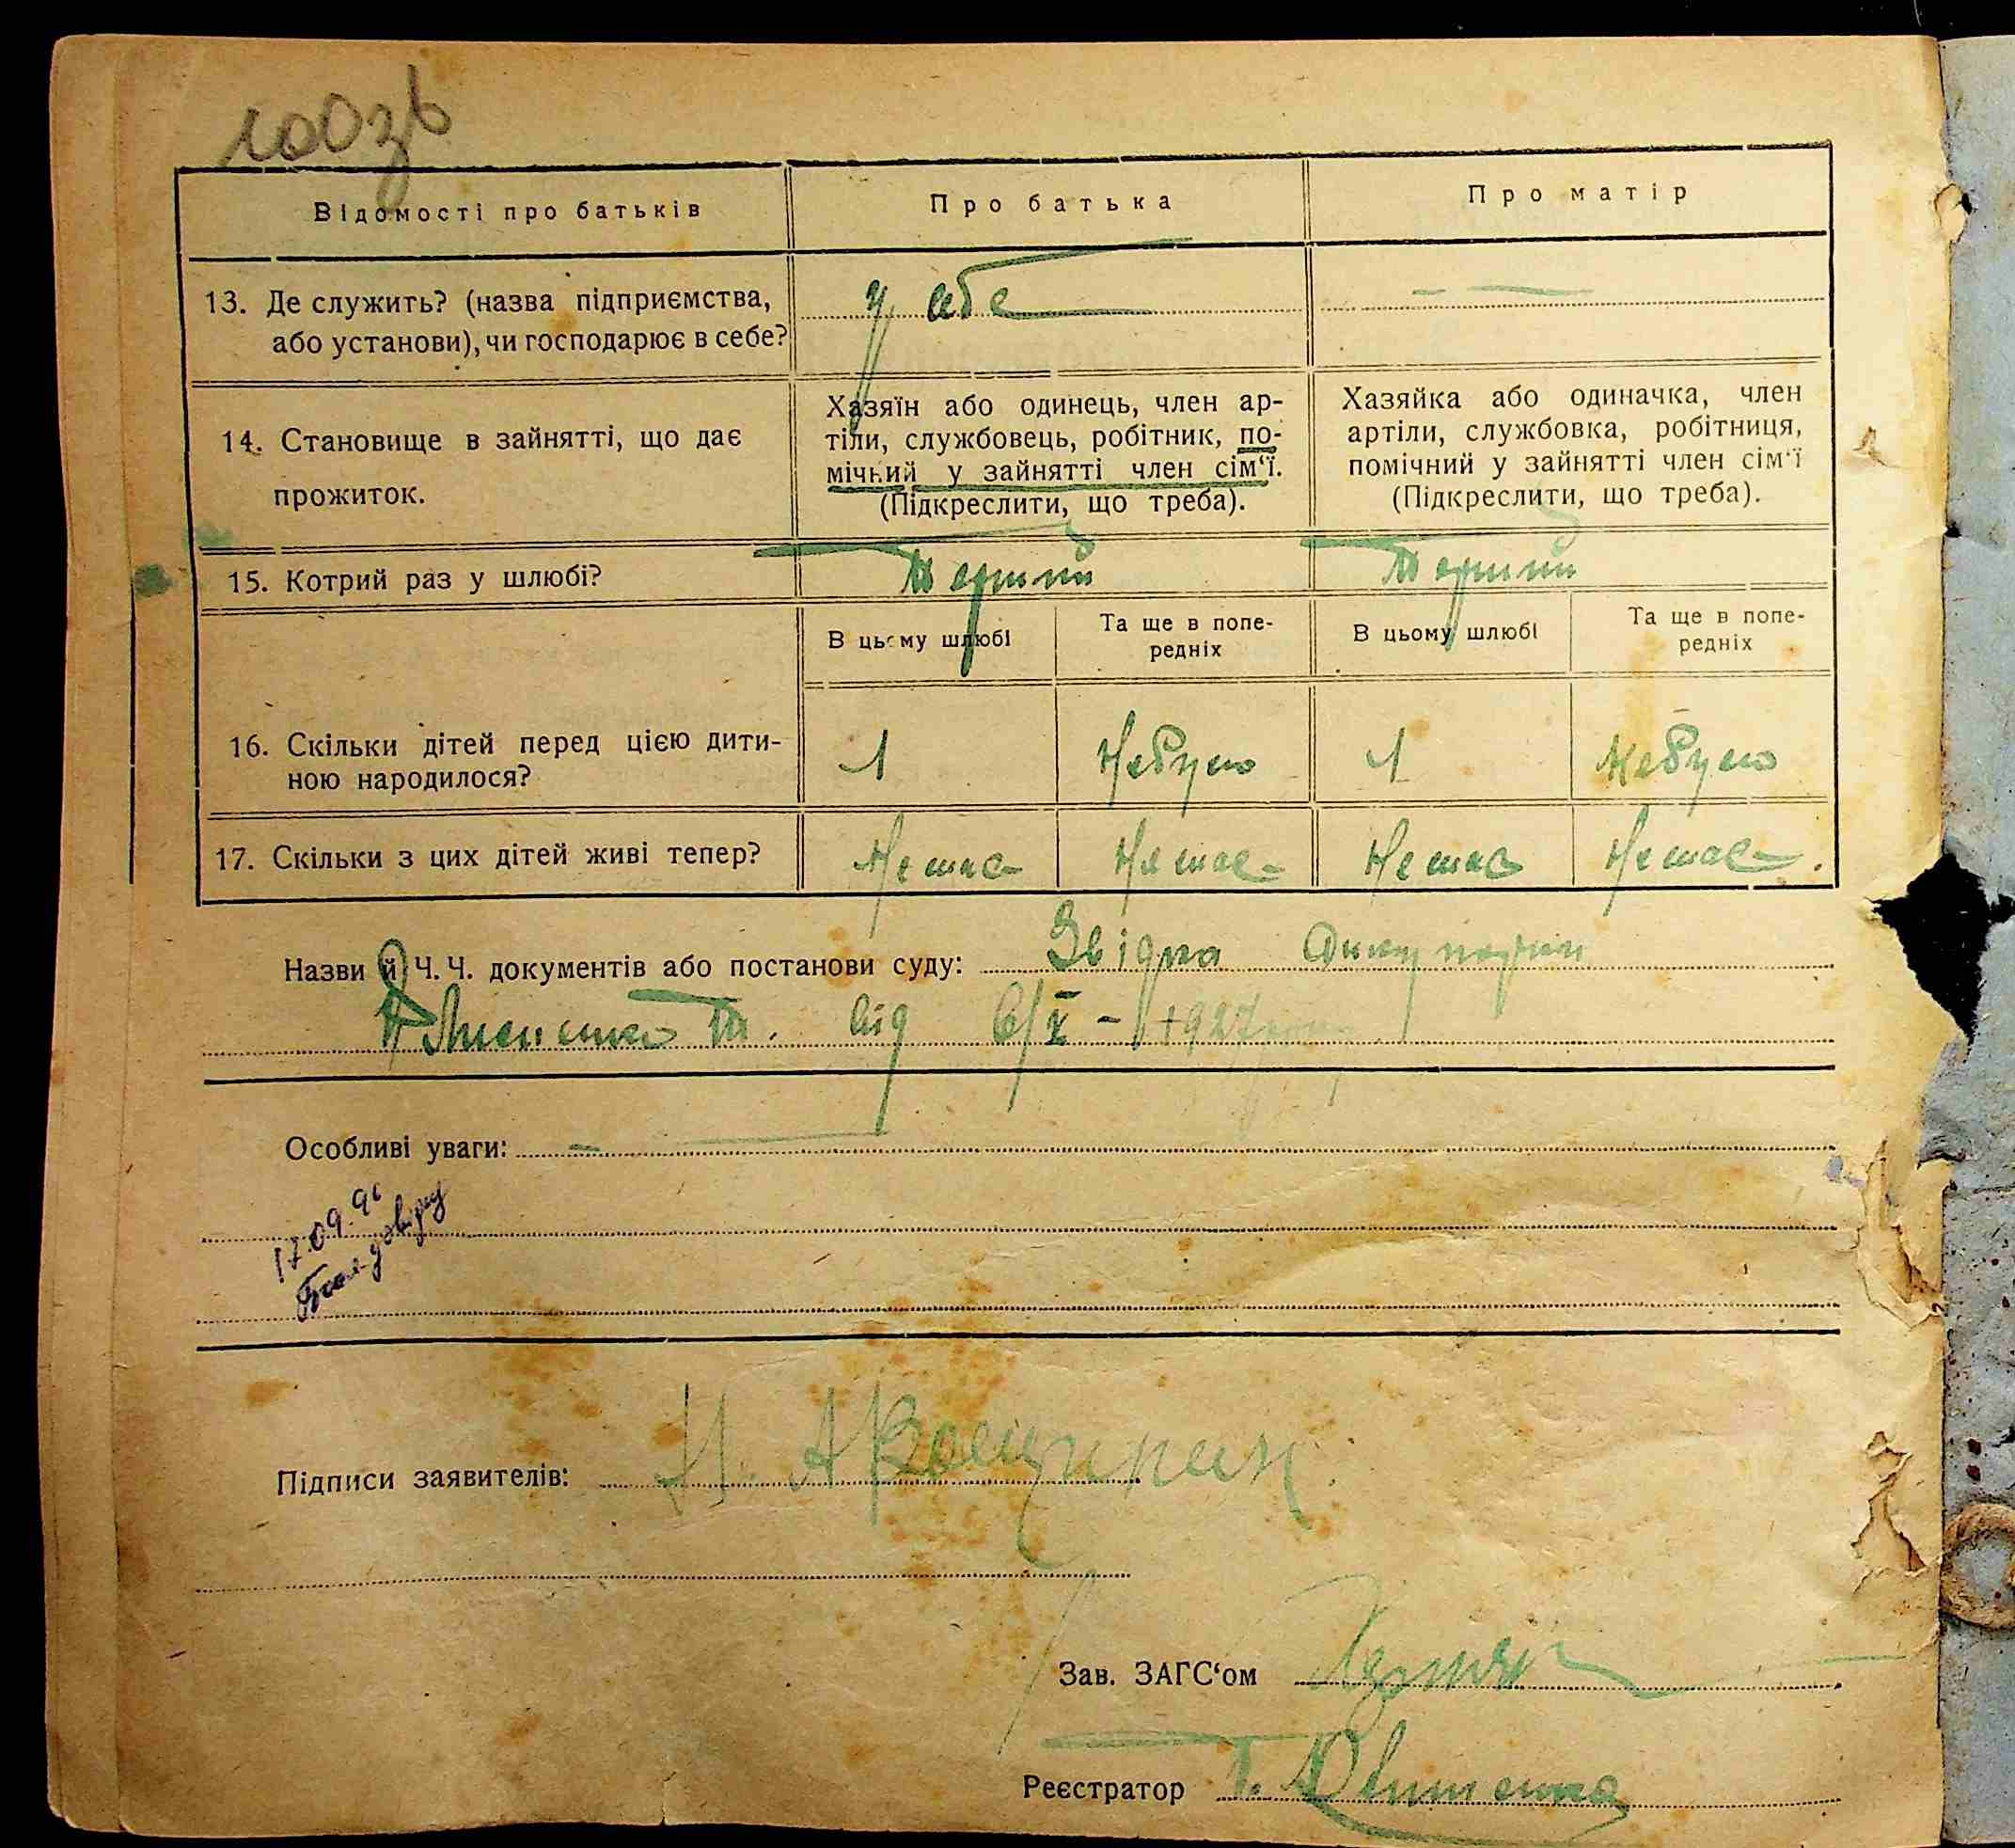 100зв
Відомості про батьків
Про батька
Про матір
13. Де служить? (назва підприємства,
або установи), чи господарює в себе?
у себе
14. Становище в зайнятті, що дає
прожиток.
Хазяїн або одинець, член ар-
тіли, службовець, робітник, по-
мічний у зайнятті член сім‘ї.
(Підкреслити, що треба).
Хазяйка або одиначка, член
артіли, службовка, робітниця,
помічний у зайнятті член сім‘ї
(Підкреслити, що треба).
15. Котрий раз у шлюбі?
Перший
Перший
В цьому шлюбі
Та ще в попе-
редніх
В цьому шлюбі
Та ще в попе-
редніх
16. Скільки дітей перед цією дити-
ною народилося?
1
Небуло
1
Небуло
17. Скільки з цих дітей живі тепер?
Немає
Немає
Немає
Немає.
Назви й Ч. Ч. документів або постанови суду:
від 6/X - 1927
Особливі уваги: —
17.09.96
Підписи заявителів:
Зав. ЗАГС‘ом
Реєстратор